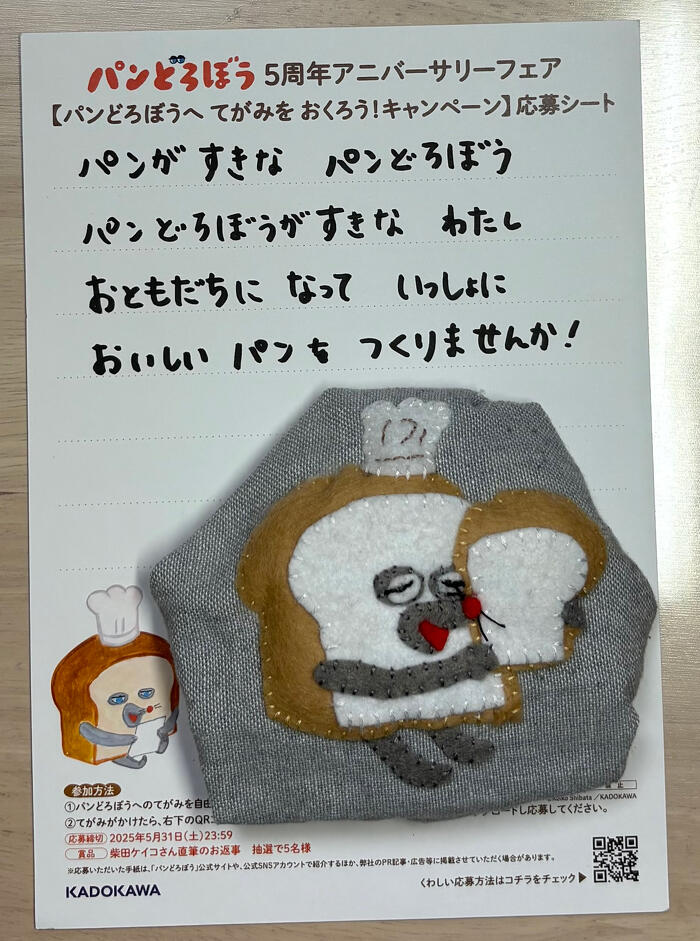 パンどろぼう 5周年アニバーサリーフェア
【パンどろぼうへ てがみを おくろう!キャンペーン】応募シート
パンが すきな パンどろぼう
パンどろぼうがすきな わたし
おともだちに なって いっしょに
おいしい パンを つくりませんか!
パン
参加方法
①パンどろぼうへのてがみを自由
②てがみがかけたら、右下のQRコ
ロードし応募してください。
応募締切 2025年5月31日(土)23:59
賞品 柴田ケイコさん直筆のお返事 抽選で5名様
※応募いただいた手紙は、「パンどろぼう」公式サイトや、公式SNSアカウントで紹介するほか、弊社のPR記事・広告等に掲載させていただく場合があります。
Keiko Shibata/KADOKAWA
KADOKAWA
くわしい応募方法はコチラをチェック▶